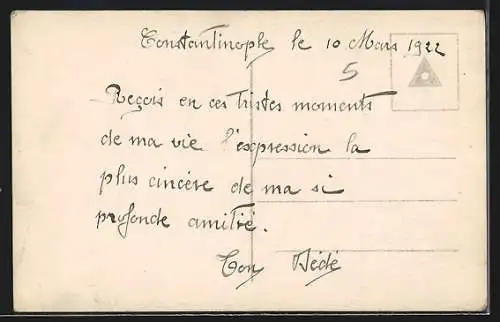 Constantinople le 10 Mars 1922
5
Reçois en ces tristes moments
de ma vie l'expression la
plus cincère de ma si
profonde amitié.
Ton Dédé